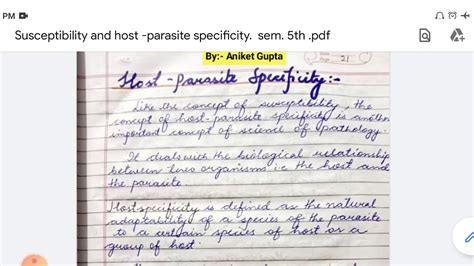 PM
Susceptibility and host -parasite specificity. sem. 5th .pdf
By:- Aniket Gupta
21
Host - Parasite Specificity:-
Like the concept of susceptibility, the
concept of host-parasite specificity is another
important concept of science of pathology.
It deals with the biological relationship
between two organisms i.e the host and
the parasite.
Host-specificity is defined as the natural
adaptability of a species of the parasite
to a certain species of host or a
group of host.